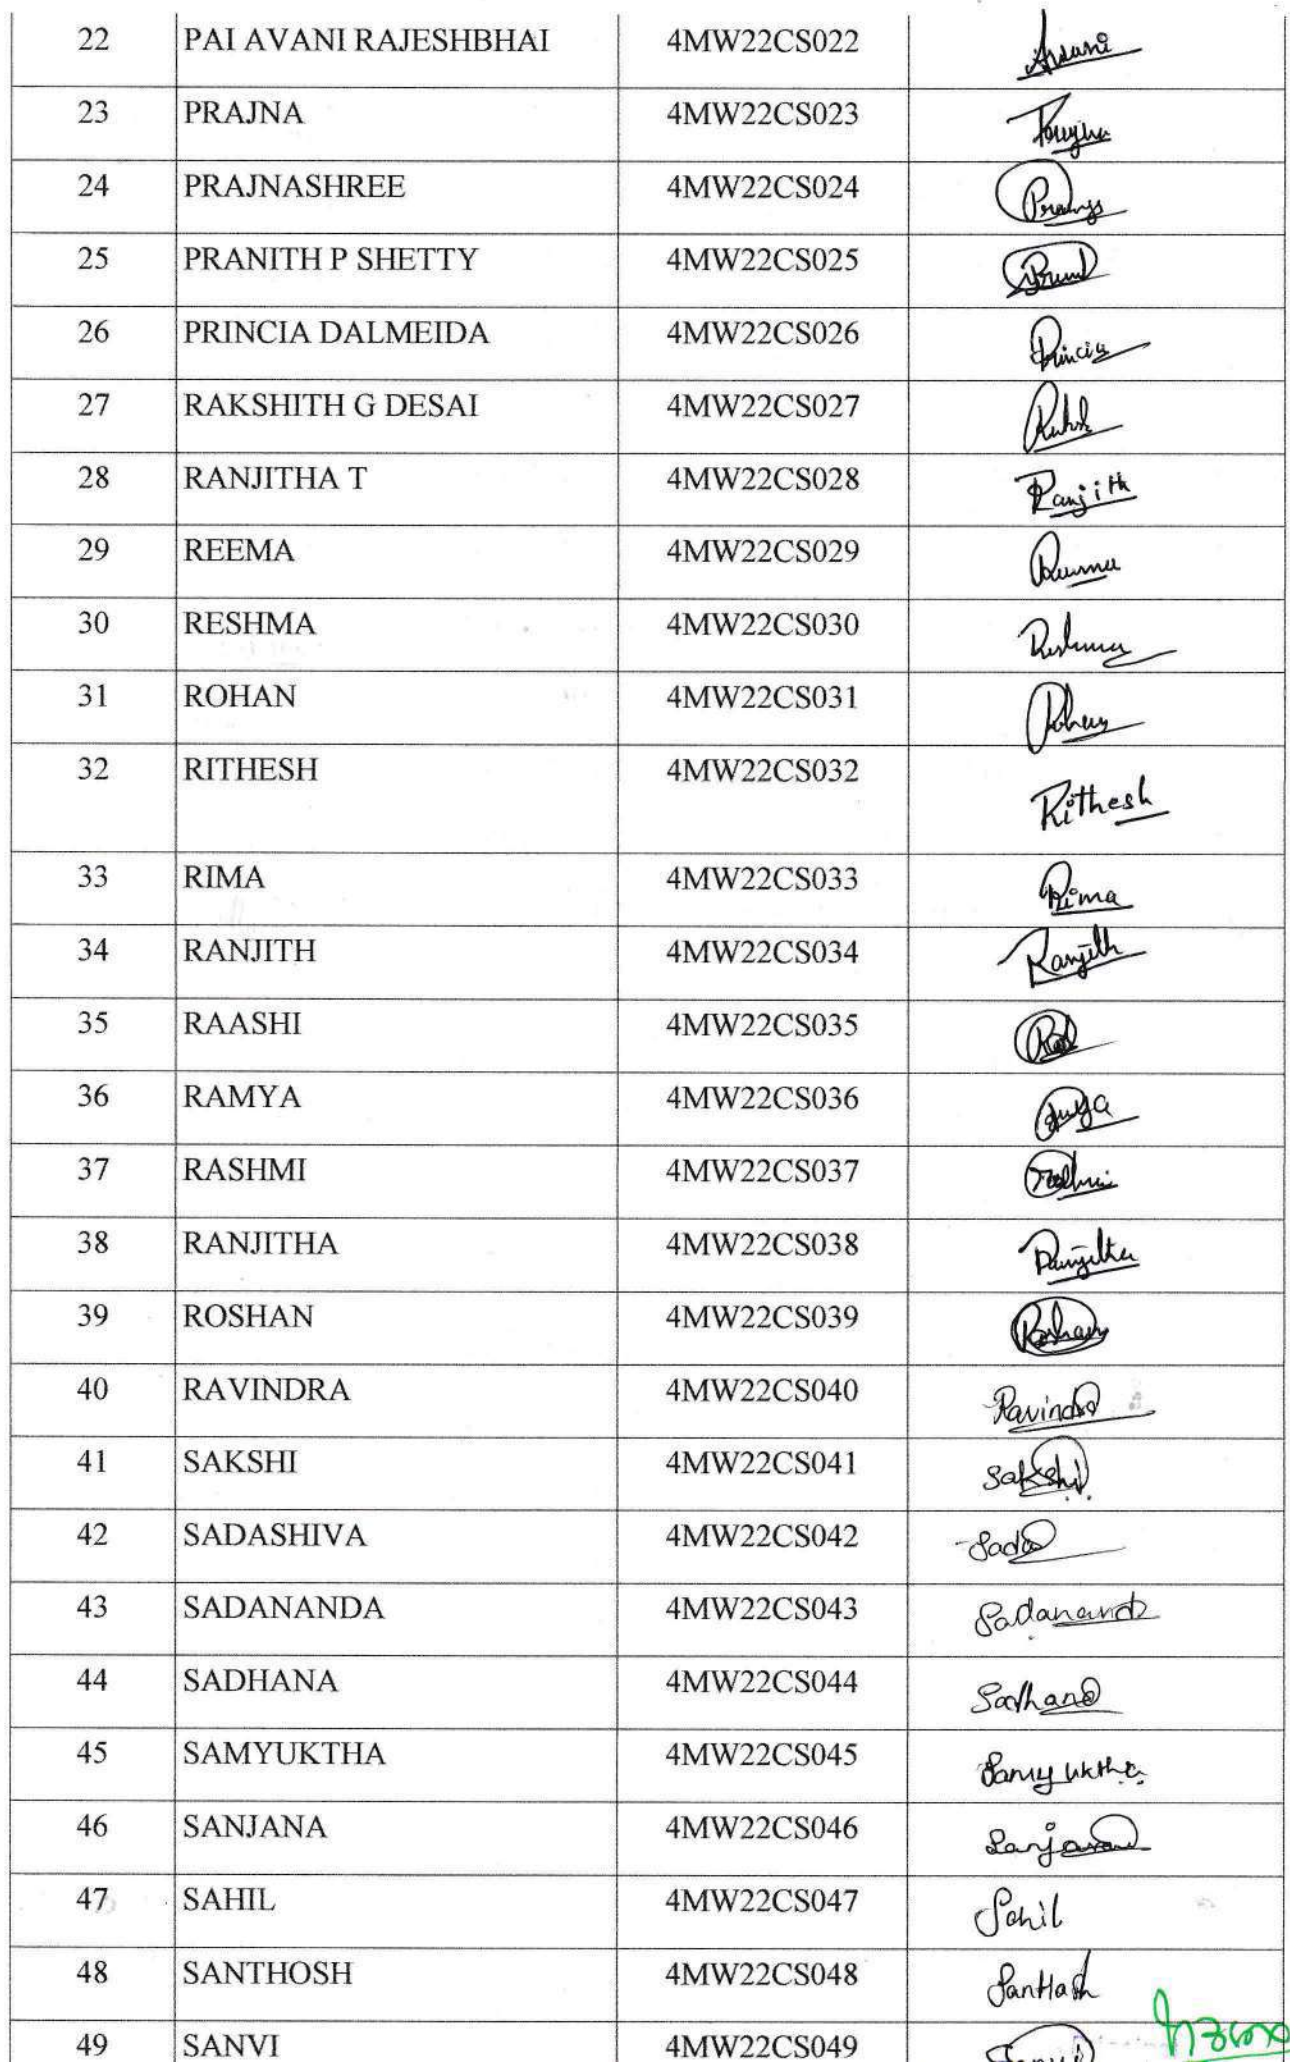 22 PAI AVANI RAJESHBHAI 4MW22CS022 Avani
23 PRAJNA 4MW22CS023 Prajna
24 PRAJNASHREE 4MW22CS024
25 PRANITH P SHETTY 4MW22CS025
26 PRINCIA DALMEIDA 4MW22CS026 Princia
27 RAKSHITH G DESAI 4MW22CS027
28 RANJITHA T 4MW22CS028 Ranjith
29 REEMA 4MW22CS029 Reema
30 RESHMA 4MW22CS030 Reshma
31 ROHAN 4MW22CS031 Rohan
32 RITHESH 4MW22CS032 Rithesh
33 RIMA 4MW22CS033 Rima
34 RANJITH 4MW22CS034 Ranjith
35 RAASHI 4MW22CS035
36 RAMYA 4MW22CS036
37 RASHMI 4MW22CS037
38 RANJITHA 4MW22CS038 Ranjitha
39 ROSHAN 4MW22CS039 Roshan
40 RAVINDRA 4MW22CS040 Ravindra
41 SAKSHI 4MW22CS041 Sakshi
42 SADASHIVA 4MW22CS042 Sada
43 SADANANDA 4MW22CS043 Sadananda
44 SADHANA 4MW22CS044 Sadhana
45 SAMYUKTHA 4MW22CS045 Samyuktha
46 SANJANA 4MW22CS046 Sanjana
47 SAHIL 4MW22CS047 Sahil
48 SANTHOSH 4MW22CS048 Santhosh
49 SANVI 4MW22CS049